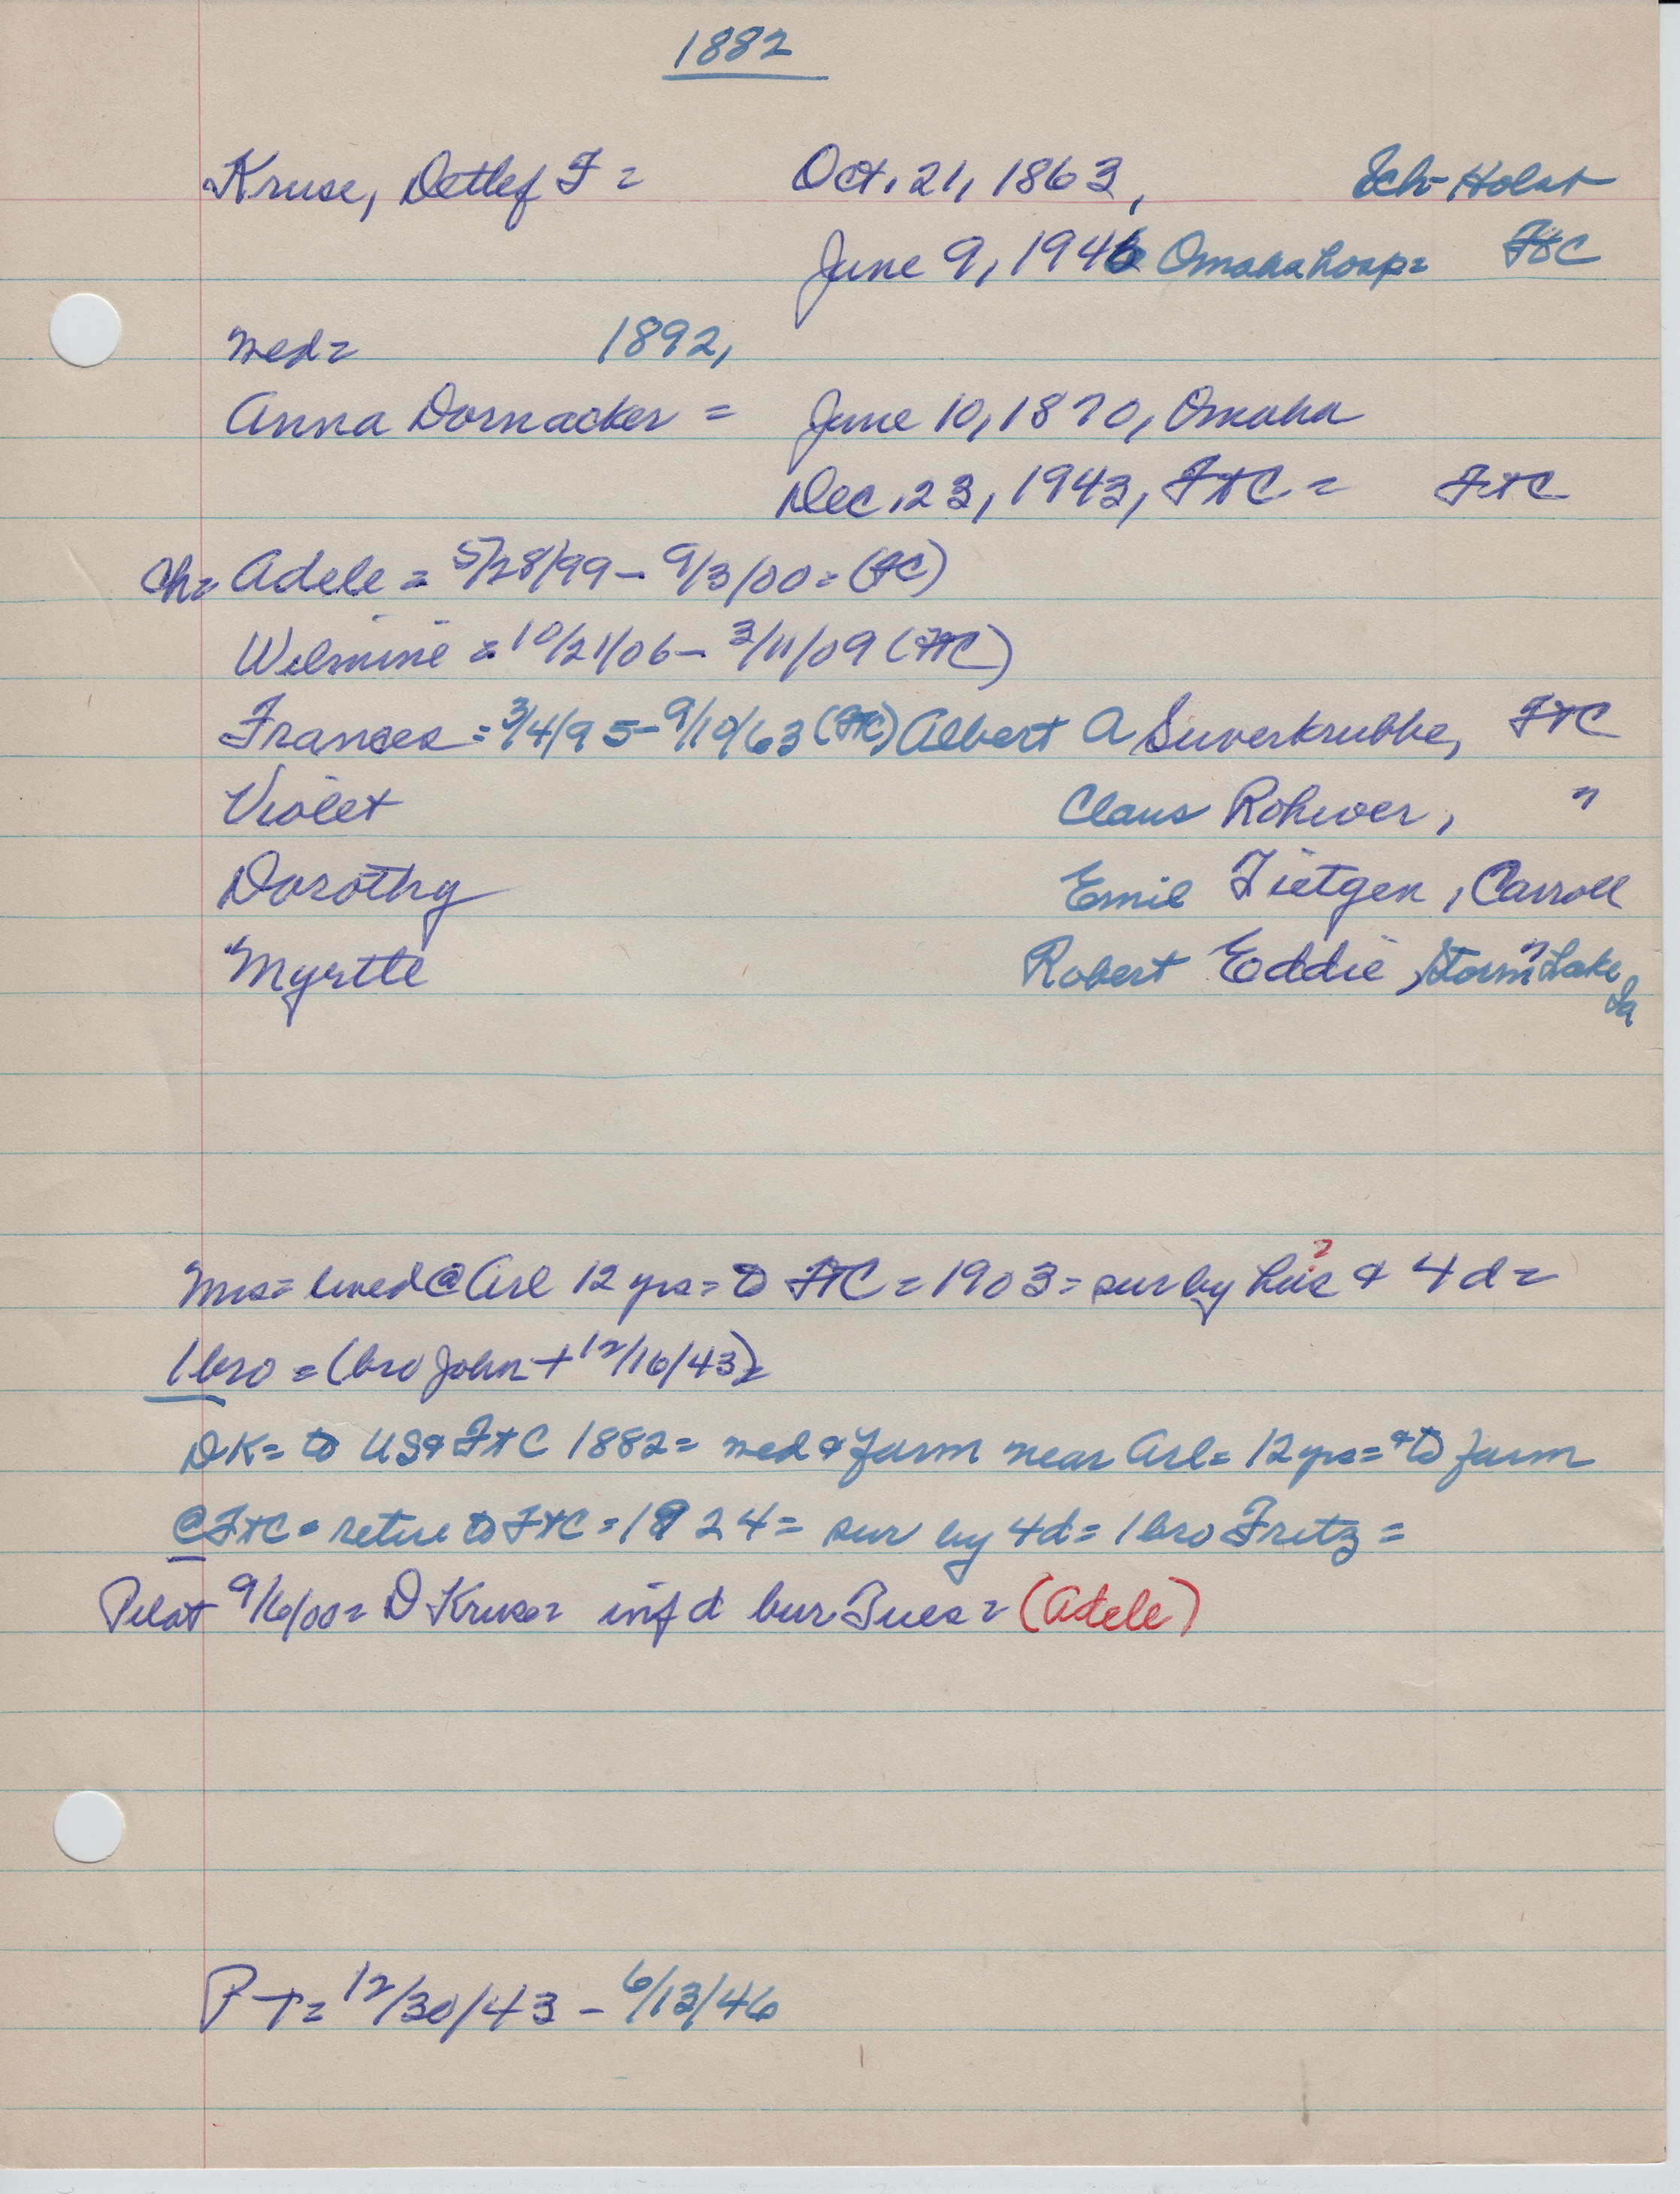 1882
Kruse, Detlef F = Oct. 21, 1863, Sch-Holst
June 9, 1946 Omaha hosp= FtC
med= 1892,
Anna Dornacker = June 10, 1870, Omaha
Dec. 23, 1943, FtC = FtC
Ch= Adele = 5/28/99 - 9/3/00 = (FC)
Wilmine = 10/21/06 - 3/11/09 (FtC)
Frances = 3/4/95 - 9/10/63 (FtC) Albert A Suverkrubbe, FtC
Violet Claus Rohwer, "
Dorothy Emil Tietgen, Carroll
Myrtle Robert Eddie, Storm Lake, Ia
Mrs = lived @ Arl 12 yrs = to FtC = 1903 = sur by hus ? & 4 d =
1 bro = (bro John + 12/16/43) =
DK = to US & FtC 1882 = med & farm near Arl = 12 yrs = & to farm
@ FtC = retire to FtC = 1924 = sur by 4d = 1 bro Fritz =
Pilot 9/6/00 = D Kruse = inf d bur Tues = (Adele)
P-T = 12/30/43 - 6/13/46